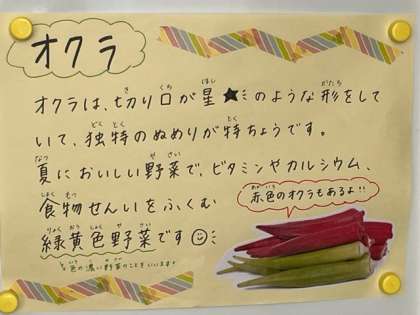 オクラ
オクラは、切り口が星★ミのような形をして
いて、独特のぬめりが特ちょうです。
夏においしい野菜で、ビタミンやカルシウム、
食物せんいをふくむ
赤色のオクラもあるよ!!
緑黄色野菜です
色の濃い野菜のことをいいます